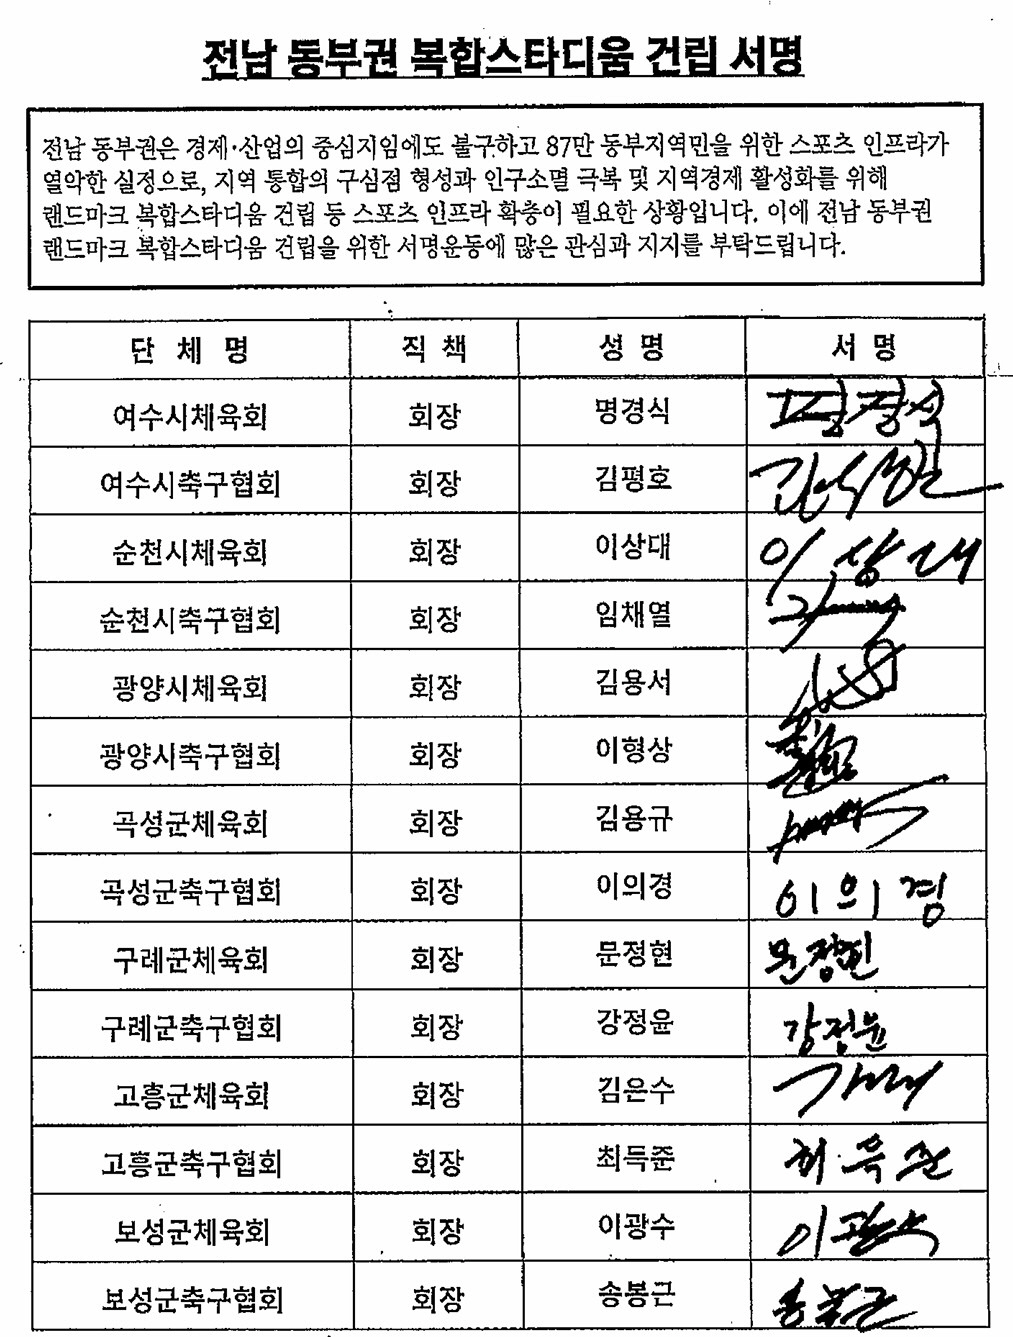 전남 동부권 복합스타디움 건립 서명
전남 동부권은 경제·산업의 중심지임에도 불구하고 87만 동부지역민을 위한 스포츠 인프라가
열악한 실정으로, 지역 통합의 구심점 형성과 인구소멸 극복 및 지역경제 활성화를 위해
랜드마크 복합스타디움 건립 등 스포츠 인프라 확충이 필요한 상황입니다. 이에 전남 동부권
랜드마크 복합스타디움 건립을 위한 서명운동에 많은 관심과 지지를 부탁드립니다.
단 체 명 직 책 성 명 서 명
여수시체육회 회장 명경식 명경식
여수시축구협회 회장 김평호
순천시체육회 회장 이상대 이상대
순천시축구협회 회장 임채열
광양시체육회 회장 김용서
광양시축구협회 회장 이형상
곡성군체육회 회장 김용규
곡성군축구협회 회장 이의경 이의경
구례군체육회 회장 문정현 문정현
구례군축구협회 회장 강정윤 강정윤
고흥군체육회 회장 김은수
고흥군축구협회 회장 최득준
보성군체육회 회장 이광수 이광수
보성군축구협회 회장 송봉근 송봉근